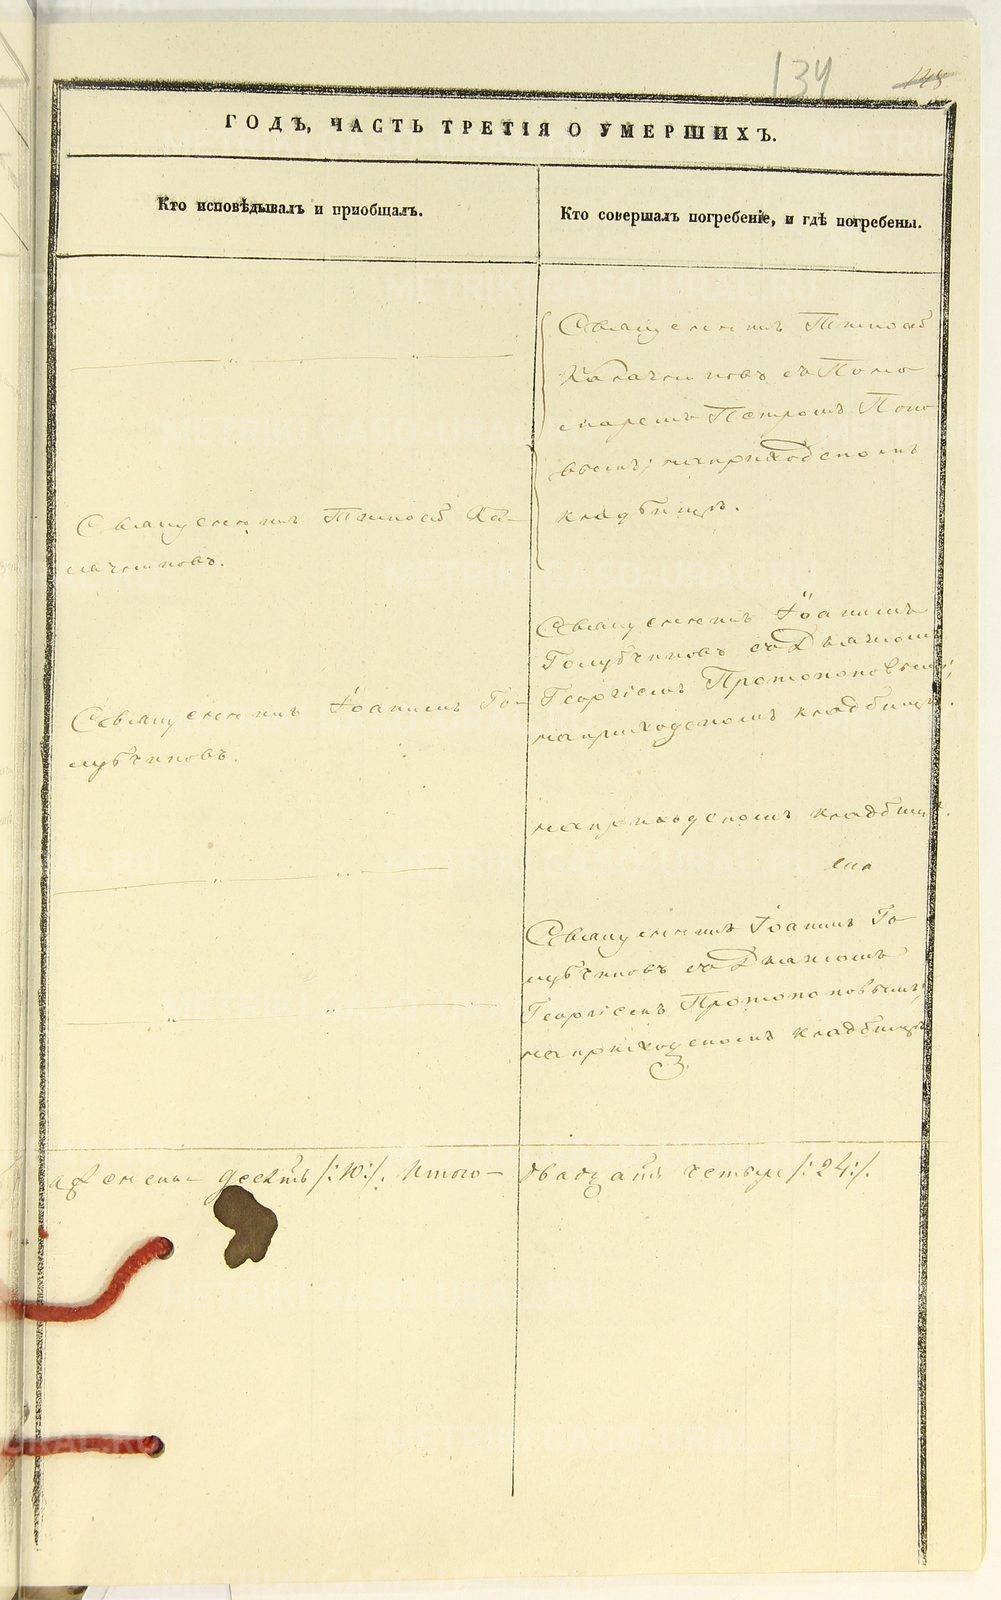 134
ГОДѢ, ЧАСТЬ ТРЕТІЯ О УМЕРШИХЪ.
Кто исповѣдывалъ и пріобщалъ.
Кто совершалъ погребеніе, и гдѣ погребены.
Священникъ Тимоѳей
Калачниковъ съ Поно
маремъ Петромъ Попо
вымъ; на приходскомъ
кладбищѣ.
Священникъ Тимоѳей Ка-
лачниковъ.
Священникъ Іоаннъ
Голубчиковъ съ Дьячкомъ
Георгіемъ Протопоповымъ;
на приходскомъ кладбищѣ.
Священникъ Іоаннъ Го-
лубчиковъ.
на приходскомъ кладбищѣ.
Священникъ Іоаннъ Го-
лубчиковъ съ Дьячкомъ
Георгіемъ Протопоповымъ;
на приходскомъ кладбищѣ
десять /:10:/. Итого — двадцать четыре /:24:/.
METRIKI.GASO-URAL.RU